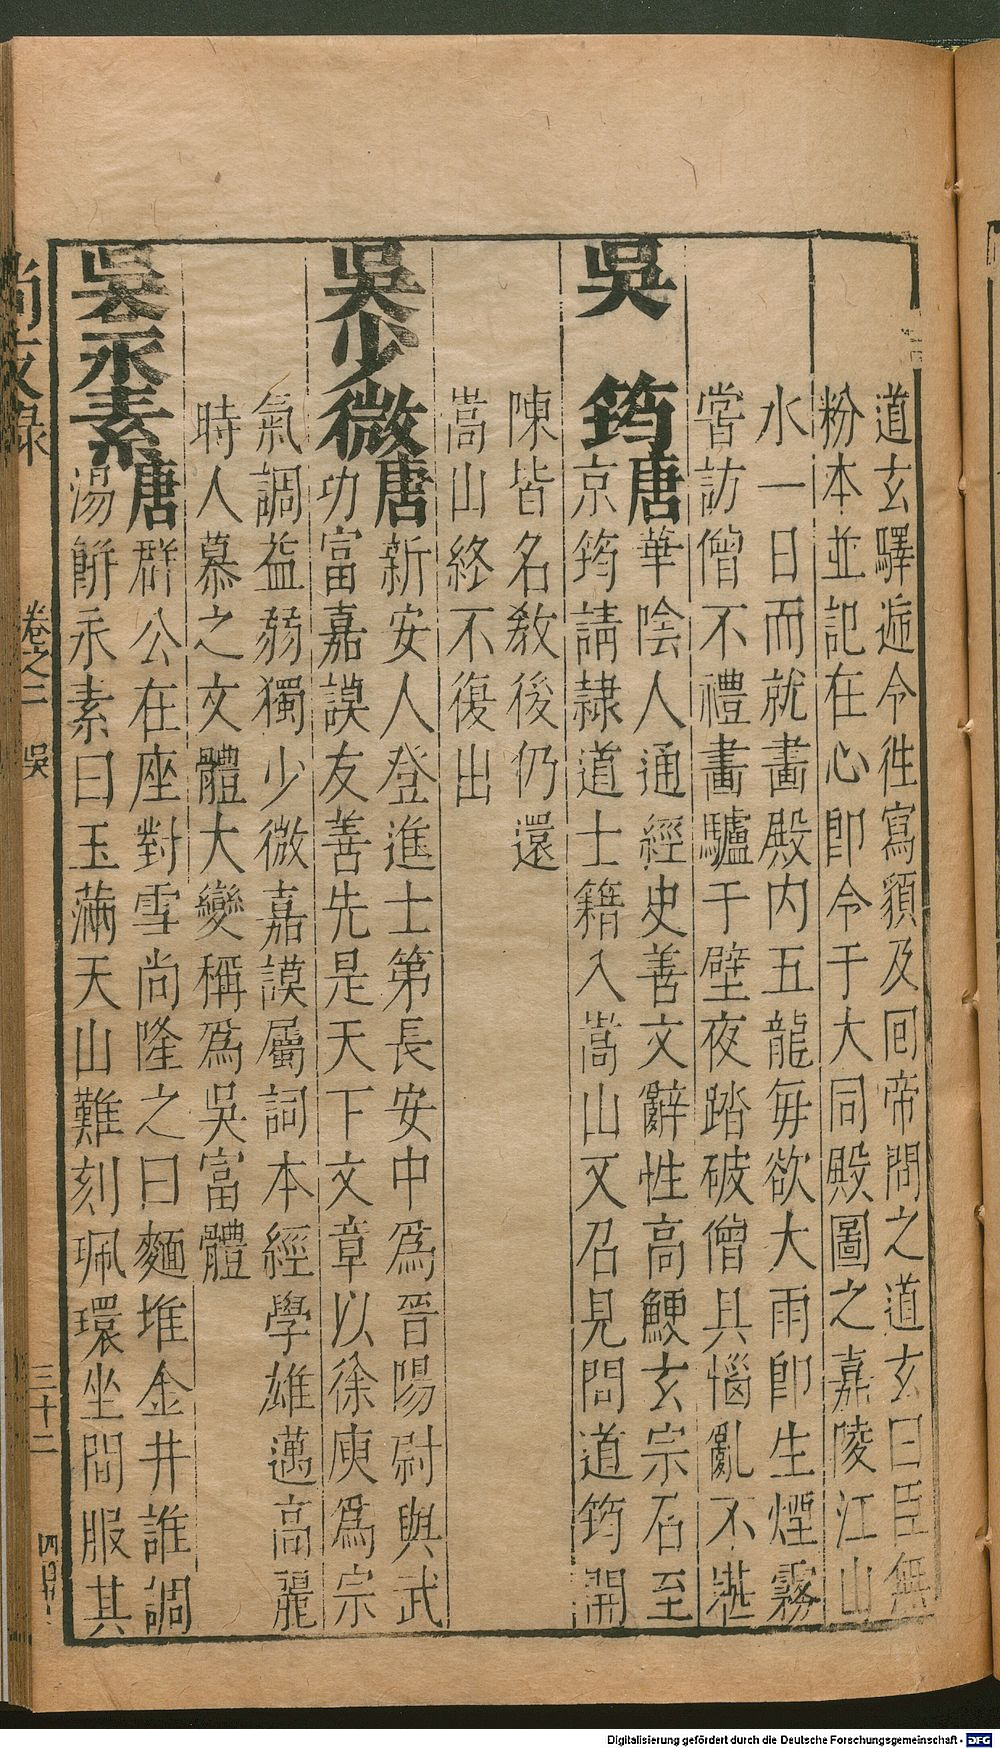 道玄驛遞令徃寫㒵及囘帝問之道玄曰臣無
粉本並記在心即令于大同殿圖之嘉陵江山
水一日而就畫殿内五龍每欲大雨即生煙霧
甞訪僧不禮畫驢于壁夜踏破僧具惱亂不堪
吳　筠唐華陰人通經史善文辭性高鯁玄宗召至
京筠請隷道士籍入嵩山又召見問道筠開
陳皆名教後仍還
嵩山終不復出
吳少微唐新安人登進士第長安中為晉陽尉與武
功富嘉謨友善先是天下文章以徐庾為宗
氣調益弱獨少微嘉謨屬詞本經學雄邁高麗
時人慕之文體大變稱為吳富體
吳永素唐群公在座對雪尚隆之曰麵堆金井誰調
湯餅永素曰玉滿天山難刻珮環坐間服其
尚友錄　卷之三　吳　三十二
Digitalisierung gefördert durch die Deutsche Forschungsgemeinschaft - DFG